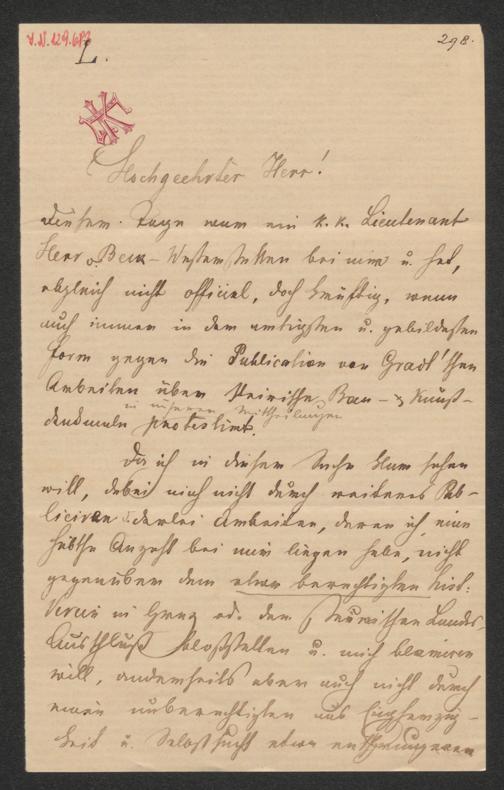 V.N. 129.682
L.
298.
Hochgeehrter Herr!
dieser Tage war ein k. k. Lieutenant
Herr v. Beck-Widmanstetter bei mir u. hat,
obgleich nicht officiel, doch kräftig, wenn
auch immer in der artigsten u. gebildetsten
Form gegen die Publication von Gradt'schen
Arbeiten über steirische Bau- & Kunst-
in unseren Mittheilungen
denkmale protestirt.
Da ich in dieser Sache klar sehen
will, dabei mich nicht durch weiteres Pub-
liciren derlei Arbeiten, deren ich eine
hübsche Anzahl bei mir liegen habe, nicht
gegenüber dem etwa berechtigten hist:
Verein in Graz od. dem steirischen Landes-
Ausschluß bloßstellen u. mich blamiren
will, anderseits aber auch nicht durch
einen unberechtigten aus Engherzig-
keit u. Selbstsucht etwa entsprungenen